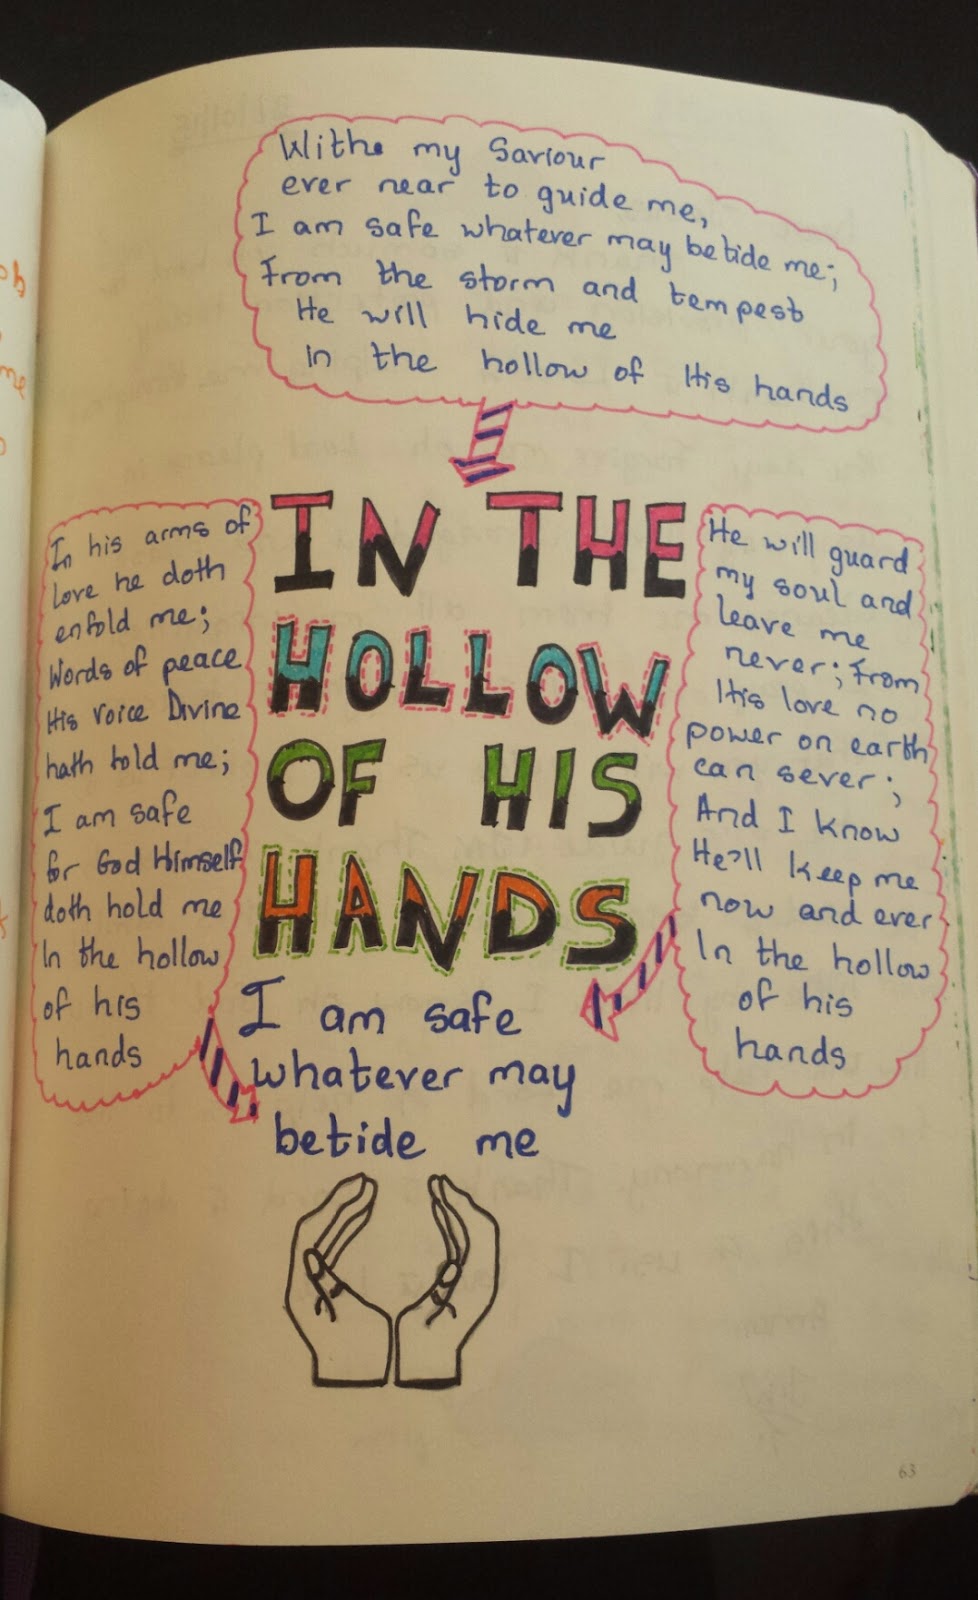 Withe my Saviour
ever near to guide me,
I am safe whatever may betide me;
From the storm and tempest
He will hide me
in the hollow of His hands
IN THE
HOLLOW
OF HIS
HANDS
In his arms of
love he doth
enfold me;
Words of peace
His voice Divine
hath told me;
I am safe
for God Himself
doth hold me
In the hollow
of his
hands
He will guard
my soul and
leave me
never; From
His love no
power on earth
can sever;
And I know
He'll keep me
now and ever
In the hollow
of his
hands
I am safe
whatever may
betide me
63